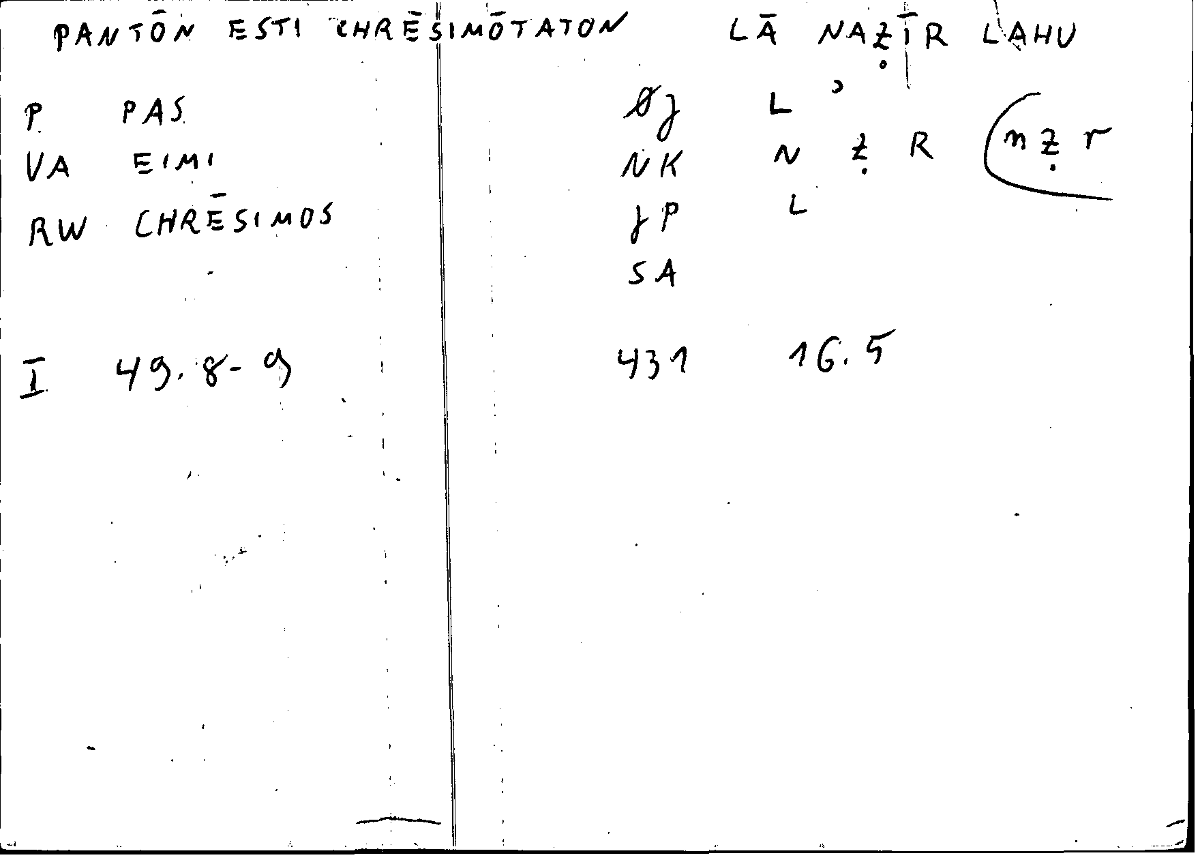 PANTŌN ESTI CHRĒSIMŌTATON LĀ NAẒĪR LAHU
P PAS ØJ L ʾ
VA EIMI NK N Ẓ R (n ẓ r
RW CHRĒSIMOS JP L
SA
I 49.8-9 431 16.5